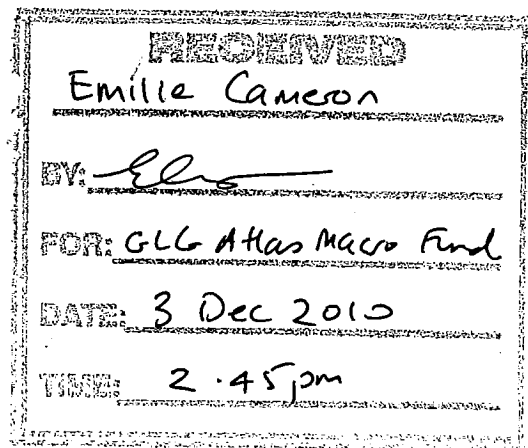 RECEIVED
Emilie Cameron
BY:
FOR: GLG Atlas Macro Fund
DATE: 3 Dec 2010
TIME: 2.45pm